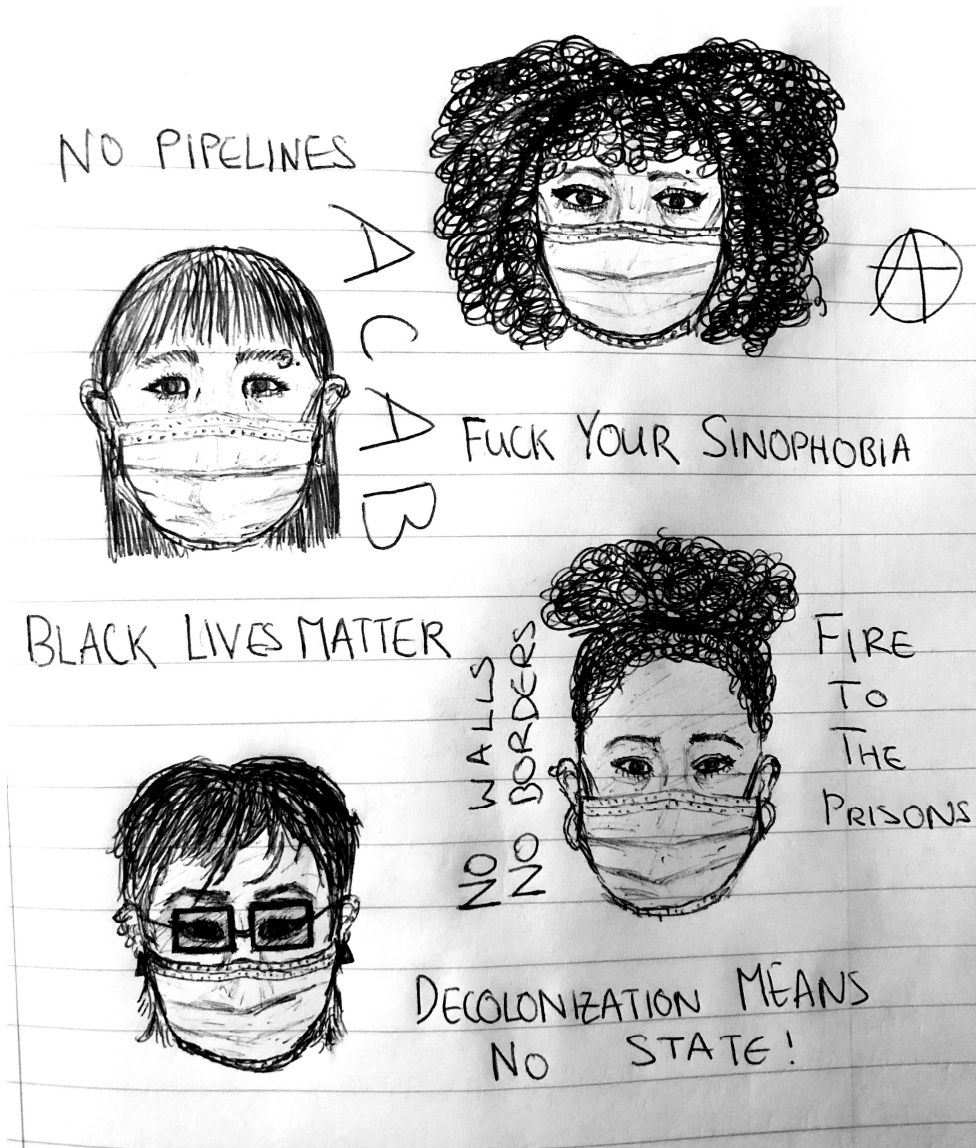 NO PIPELINES
ACAB
A
FUCK YOUR SINOPHOBIA
BLACK LIVES MATTER
NO WALLS
NO BORDERS
FIRE
TO
THE
PRISONS
DECOLONIZATION MEANS
NO STATE!